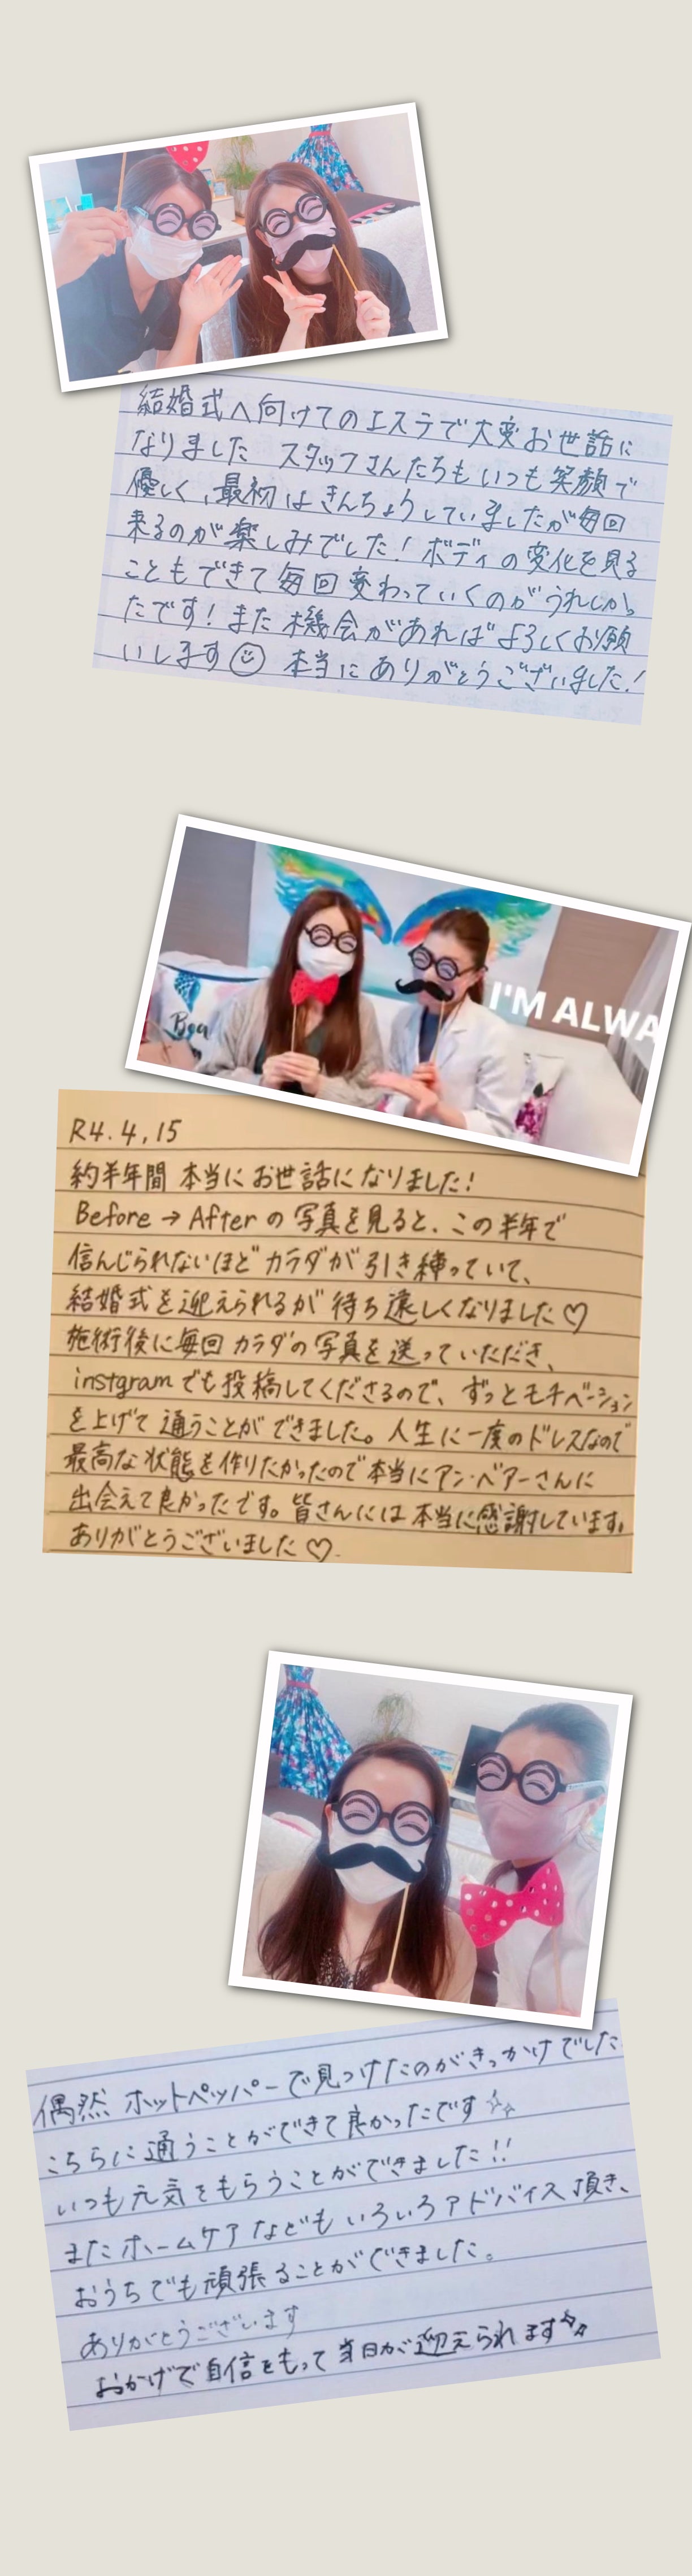 結婚式へ向けてのエステで大変お世話に
なりました スタッフさんたちもいつも笑顔で
優しく、最初はきんちょうしていましたが毎回
来るのが楽しみでした！ボディの変化を見る
こともできて毎回変わっていくのがうれしかっ
たです！また機会があればよろしくお願
いします☺ 本当にありがとうございました！
Bea
I'M ALWA
R4.4,15
約半年間 本当にお世話になりました！
Before→Afterの写真を見ると、この半年で
信んじられないほどカラダが引き練っていて、
結婚式を迎えられるが待ち遠しくなりました♡
施術後に毎回カラダの写真を送っていただき、
instgramでも投稿してくださるので、ずっとモチベーション
を上げて通うことができました。人生に一度のドレスなので
最高な状態を作りたかったので本当にアン・ベアーさんに
出会えて良かったです。皆さんには本当に感謝しています。
ありがとうございました♡
偶然 ホットペッパーで見つけたのがきっかけでした
こちらに通うことができて良かったです✨
いつも元気をもらうことができました！！
またホームケアなどもいろいろアドバイス頂き、
おうちでも頑張ることができました。
ありがとうございます
おかげで自信をもって当日が迎えられます✨